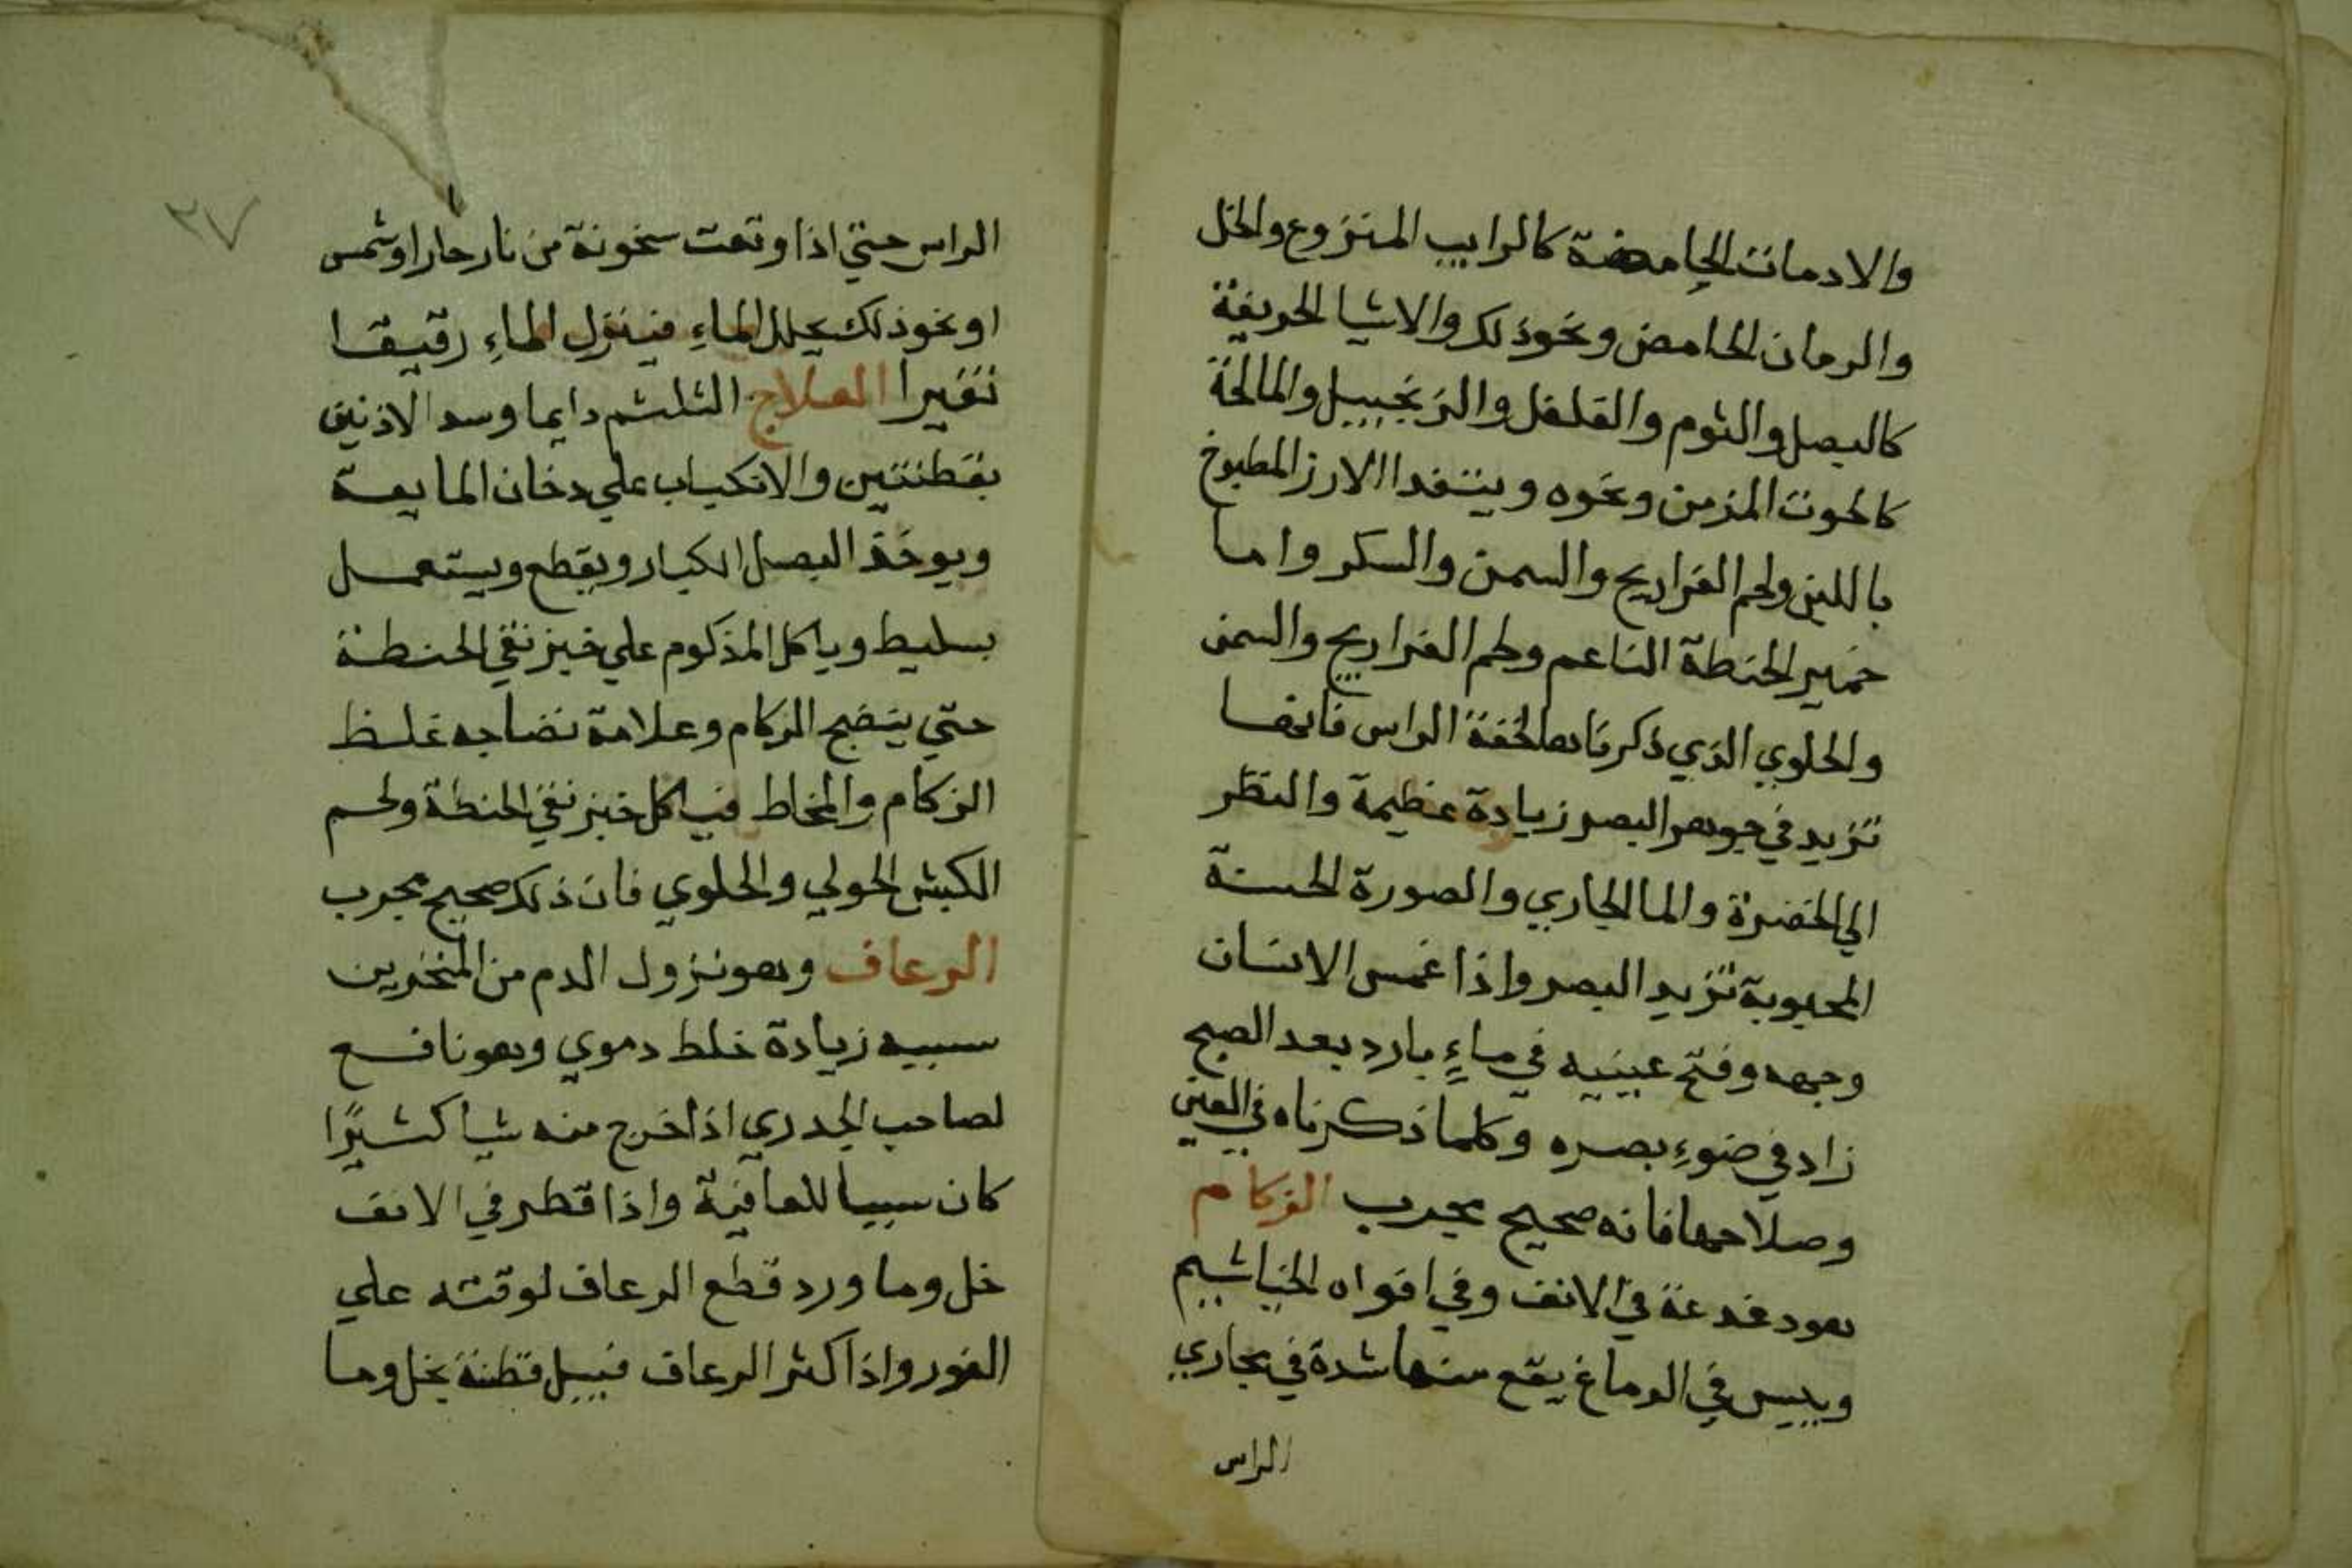 والادمانات الحامضة كالرايب المنزوع والخل
والرمان الحامض ونحو ذلك والاشيا الحريفة
كالبصل والثوم والفلفل والزنجبيل والمالحة
كالحوت المزمن ونحوه ويتغدا الارز المطبوخ
باللبن ولحم الفراريج والسمن والسكر واما
خمير الحنطة الناعم ولحم الفراريج والسمن
والحلوي الذي ذكرناها لخفة الراس فانها
تزيد في جوهر البصر زيادة عظيمة والنظر
الي الخضرة والما الجاري والصورة الحسنة
المحبوبة تزيد البصر واذا غمس الانسان
وجهه وفتح عينيه في ماءٍ بارد بعد الصبح
زاد في ضوءِ بصره وكلما ذكرناه في العين
وصلاحها فانه صحيح مجرب الزكام
هو دغدغة في الانف وفي افواه الخياشيم
ويبس في الدماغ يقع منها شدة في مجاري
الراس
٢٧
الراس حتي اذا وقعت سخونة من نار حار او شمس
او نحو ذلك يحلل الماءِ فينزل الماءِ رقيقا
العلاج التلثم دايما وسد الاذنين
بقطنتين والانكباب علي دخان المايعة
ويوخذ البصل الكبار ويقطع ويستعمل
بسليط وياكل المذكوم علي خبز نقي الحنطة
حتي ينضج الزكام وعلامة نضاجه غلظ
الزكام والمخاط فياكل خبز نقي الحنطة ولحم
الكبش الحولي والحلوي فان ذلك صحيح مجرب
الرعاف وهو نزول الدم من المنخرين
سببه زيادة خلط دموي وهو نافع
لصاحب الجدري اذا خرج منه شيا كثيرًا
كان سببا للعافية واذا قطر في الانف
خل وما ورد قطع الرعاف لوقته علي
الفور واذا كثر الرعاف فيبل قطنة بخل وما